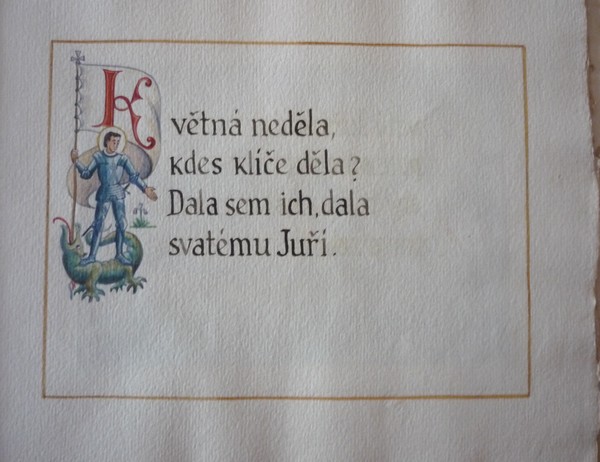 Květná neděla,
kdes klíče děla?
Dala sem ich, dala
svatému Juří.